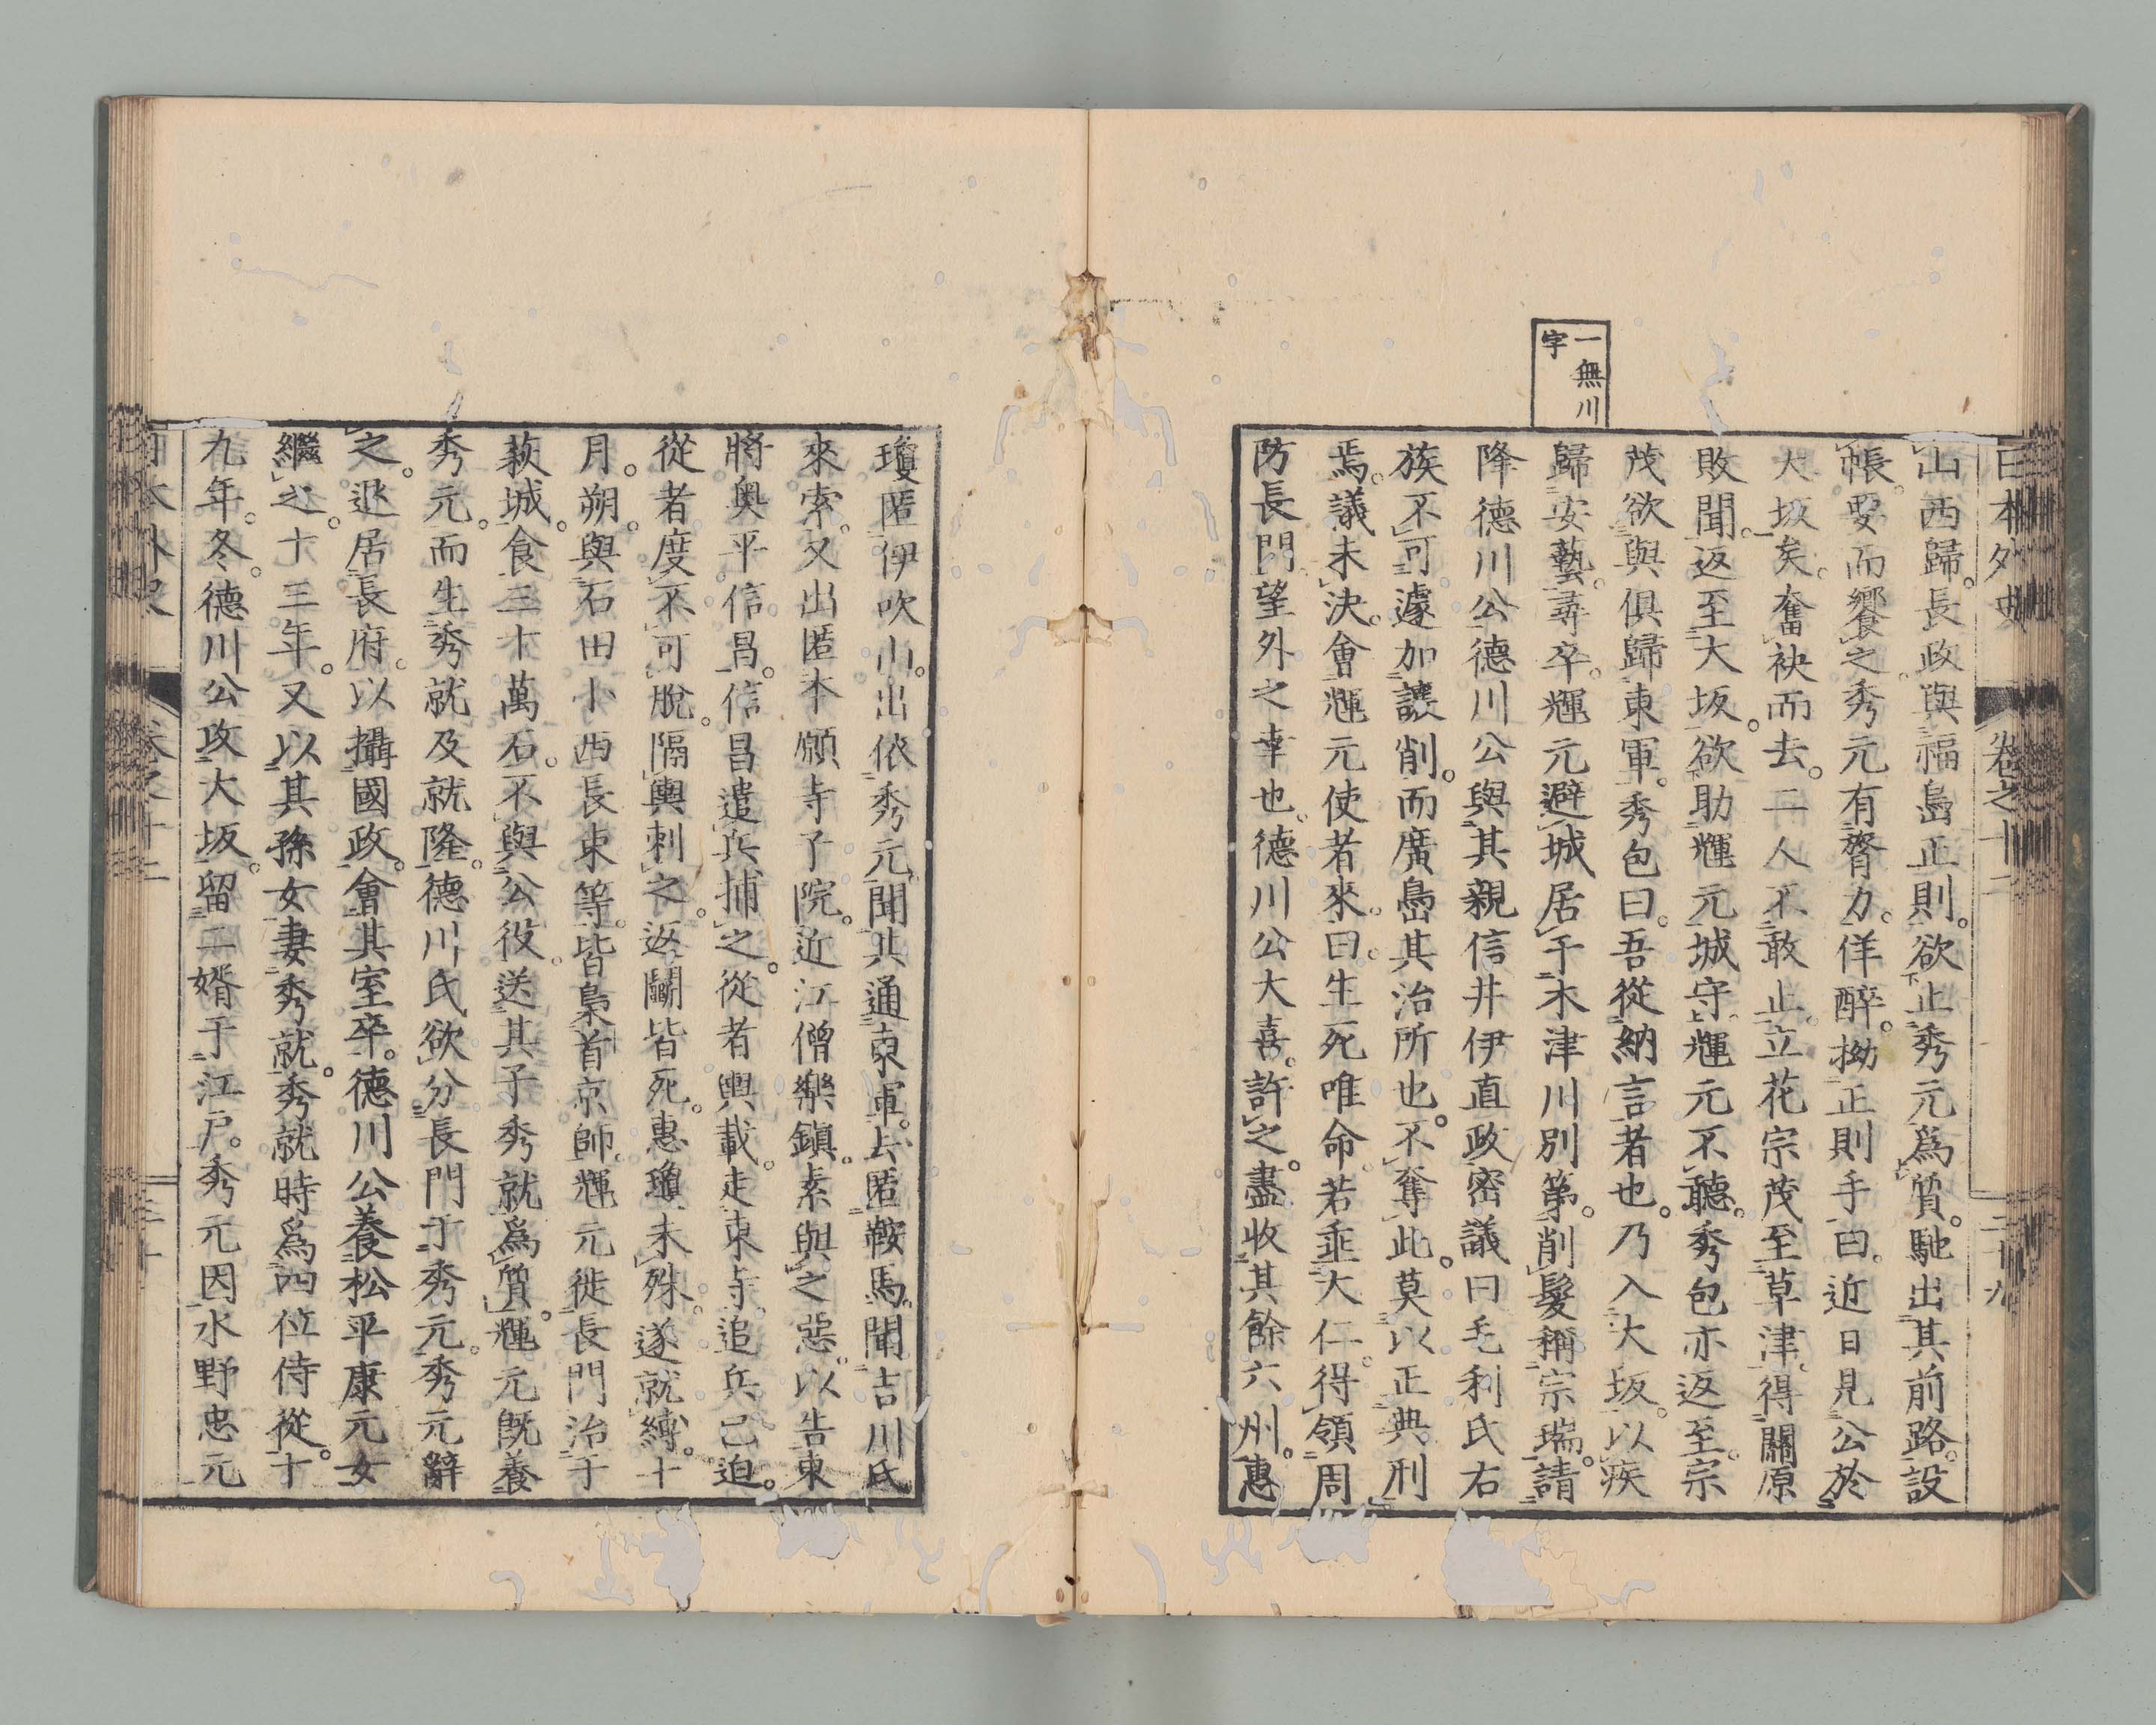 日本外史 卷之十二 二十九
一無川
字
山西歸。長政與福島正則。欲止秀元爲質。馳出其前路。設
帳。要而饗之。秀元有膂力。佯醉。拗正則手曰。近日見公於
大坂矣。奮袂而去。二人不敢止。立花宗茂至草津。得關原
敗聞。返至大坂。欲助輝元城守。輝元不聽。秀包亦返至。宗
茂欲與俱歸東軍。秀包曰。吾從納言者也。乃入大坂。以疾
歸安藝。尋卒。輝元避城居于木津川別第。削髮稱宗瑞。請
降德川公。德川公與其親信井伊直政密議曰。毛利氏右
族。不可遽加讓削。而廣島其治所也。不奪此。莫以正典刑
焉。議未決。會輝元使者來。曰。生死唯命。若垂大仁。得領周
防長門。望外之幸也。德川公大喜。許之。盡收其餘六州。惠
瓊匿伊吹山。出依秀元。聞其通東軍。去匿鞍馬。聞吉川氏
來索。又出匿本願寺子院。近江僧樂鎭。素與之惡。以告東
將奧平信昌。信昌遣兵捕之。從者輿載。走東寺。追兵已迫。
從者度不可脫。隔輿刺之。返鬭皆死。惠瓊未殊。遂就縛。十
月。朔。與石田小西長束等。皆梟首京師。輝元徙長門。治于
萩城。食三十萬石。不與公役。送其子秀就爲質。輝元旣養
秀元。而生秀就及就隆。德川氏欲分長門于秀元。秀元辭
之。退居長府。以攝國政。會其室卒。德川公養松平康元女
繼之。十三年。又以其孫女妻秀就。秀就時爲四位侍從。十
九年。冬。德川公攻大坂。留二婿于江戶。秀元因水野忠元
日本外史 卷之十二 三十